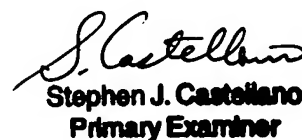 S. Castellano
Stephen J. Castellano
Primary Examiner